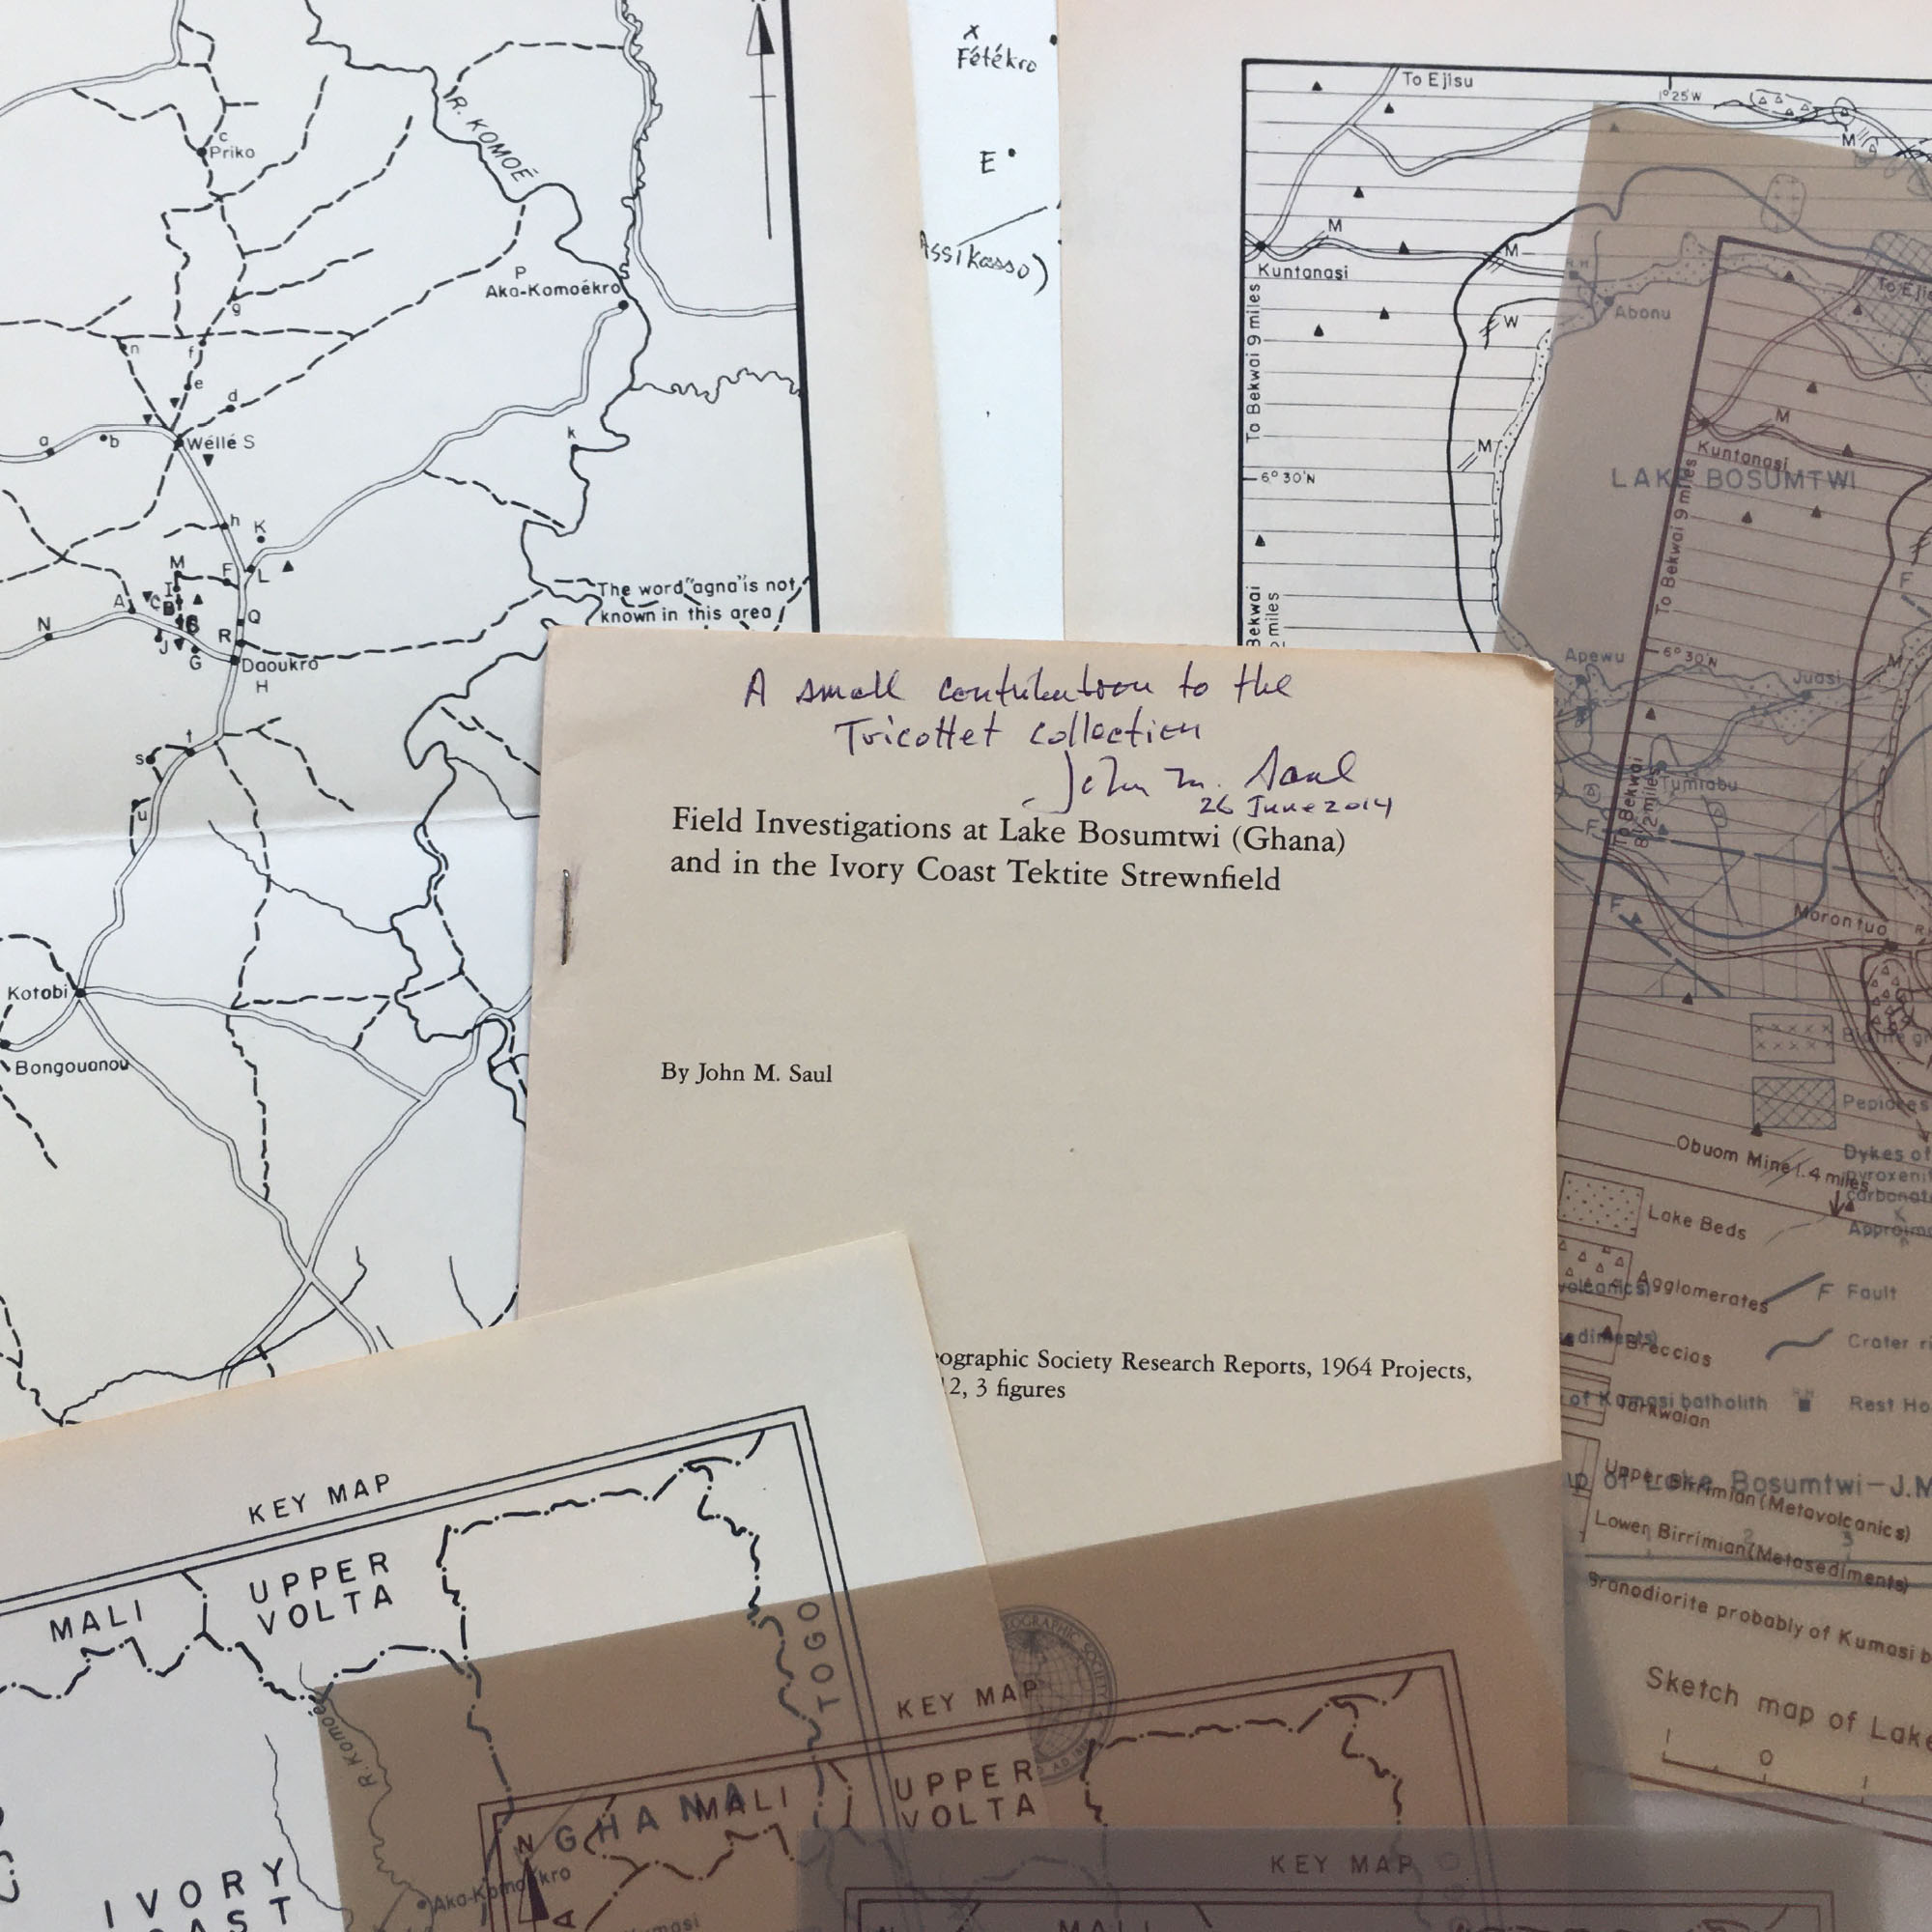 R. KOMOÉ
c
Priko
P
Aka-Komoékro
g
n
f
e
d
a
b
Wéllé S
k
h
K
M
F
L
I
A
C
B
N
Q
R
J
G
Daoukro
H
The word "agna" is not
known in this area
t
s
u
Kotobi
Bongouanou
x
Fétékro
E
Assikasso)
To Ejisu
1°25'W
M
M
M
Kuntanasi
R.H.
Abonu
W
To Bekwai 9 miles
M
6°30'N
LAKE BOSUMTWI
Bekwai
miles
Apewu
Juasi
Tumiabu
F
F
Pepiakes
Dykes of
pyroxeni
carbonat
Approxima
F Fault
Crater ri
of Kumasi batholith
Rest Ho
of Lake Bosumtwi—J.M
To Eji
M
Kuntanasi
To Bekwai 9 miles
F
6°30'N
M
To Bekwai
8 1/2 miles
Morontuo
Obuom Mine 1.4 miles
Lake Beds
Agglomerates
Breccias
Tarkwaian
Upper Birrimian (Metavolcanics)
Lower Birrimian (Metasediments)
Granodiorite probably of Kumasi b
Sketch map of Lake
0
A small contribution to the
Tricottet collection
John M. Saul
26 June 2014
Field Investigations at Lake Bosumtwi (Ghana)
and in the Ivory Coast Tektite Strewnfield
By John M. Saul
ographic Society Research Reports, 1964 Projects,
12, 3 figures
KEY MAP
MALI
UPPER
VOLTA
TOGO
R. Komoé
GHANA
IVORY
AST
Aka-Komoékro
KEY MAP
MALI
UPPER
VOLTA
N
KEY MAP
MALI